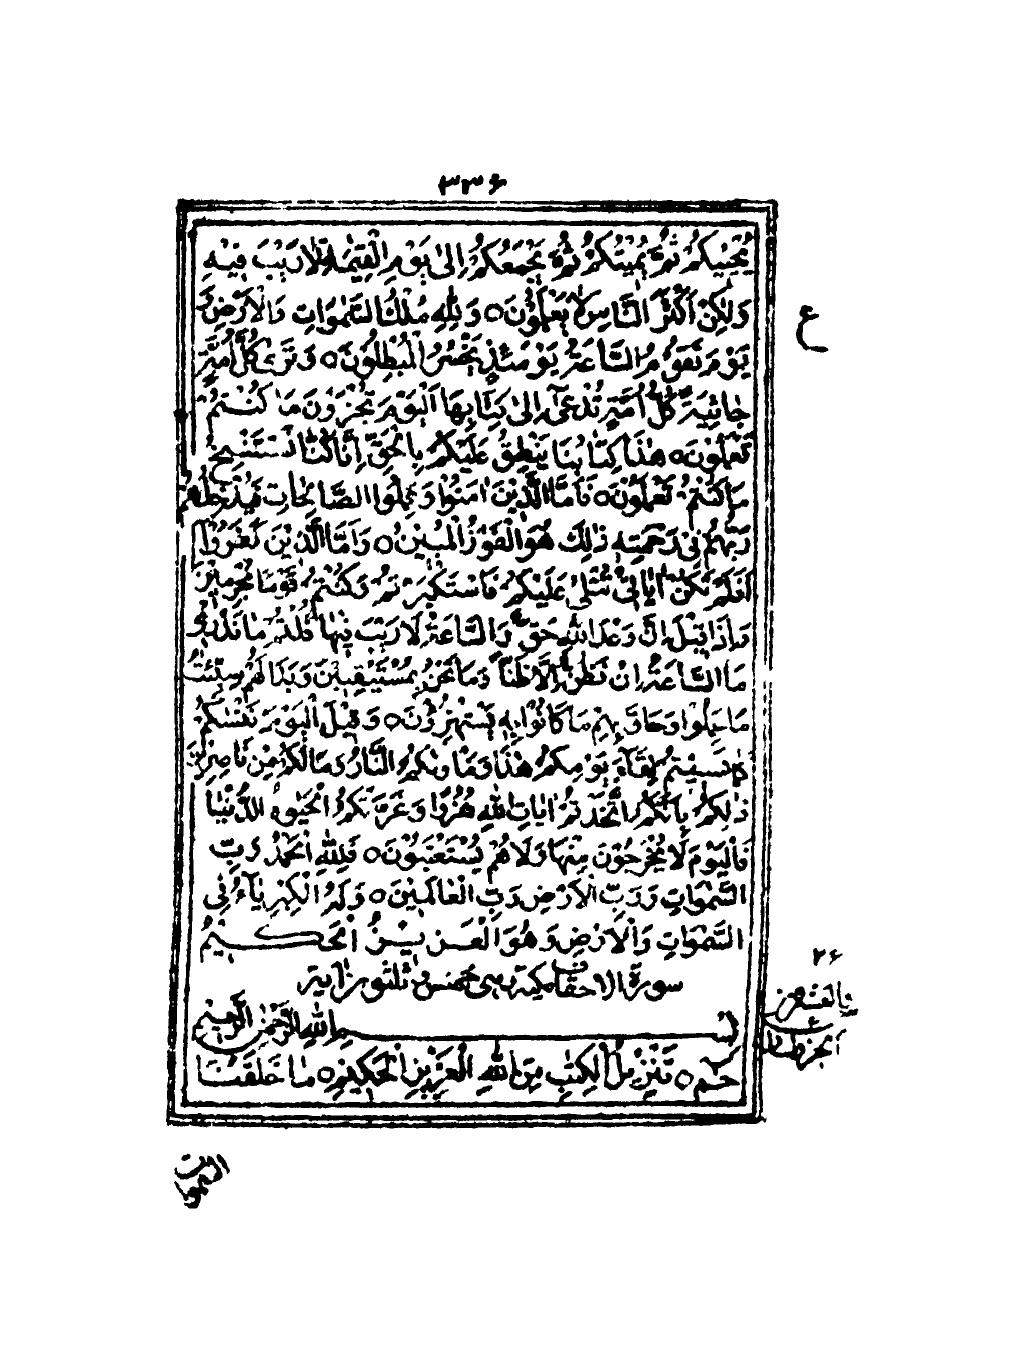 ۳۳۶
يُحْيِيكُمْ ثُمَّ يُمِيتُكُمْ ثُمَّ يَجْمَعُكُمْ إِلىٰ يَوْمِ الْقِيٰمَةِ لَارَيْبَ فِيْهِ
وَلٰكِنَّ أَكْثَرَ النَّاسِ لَا يَعْلَمُوْنَ ○ وَلِلّٰهِ مُلْكُ السَّمٰوَاتِ وَالْاَرْضِ وَ
ع
يَوْمَ تَقُوْمُ السَّاعَةُ يَوْمَئِذٍ يَخْسَرُ الْمُبْطِلُوْنَ ○ وَتَرىٰ كُلَّ اُمَّةٍ
جَاثِيَةً كُلُّ اُمَّةٍ تُدْعىٰٓ اِلىٰ كِتَابِهَا اَلْيَوْمَ تُجْزَوْنَ مَا كُنْتُمْ
تَعْمَلُوْنَ ○ هٰذَا كِتَابُنَا يَنْطِقُ عَلَيْكُمْ بِالْحَقِّ اِنَّا كُنَّا نَسْتَنْسِخُ
مَا كُنْتُمْ تَعْمَلُوْنَ ○ فَاَمَّا الَّذِيْنَ اٰمَنُوْا وَعَمِلُوا الصَّالِحَاتِ فَيُدْخِلُهُمْ
رَبُّهُمْ فِى رَحْمَتِهِ ذٰلِكَ هُوَ الْفَوْزُ الْمُبِيْنُ ○ وَاَمَّا الَّذِيْنَ كَفَرُوْا
اَفَلَمْ تَكُنْ اٰيَاتِىْ تُتْلىٰ عَلَيْكُمْ فَاسْتَكْبَرْتُمْ وَكُنْتُمْ قَوْمًا مُجْرِمِيْنَ
وَاِذَا قِيْلَ اِنَّ وَعْدَ اللّٰهِ حَقٌّ وَالسَّاعَةُ لَا رَيْبَ فِيْهَا قُلْتُمْ مَا نَدْرِىْ
مَا السَّاعَةُ اِنْ نَظُنُّ اِلَّا ظَنًّا وَمَا نَحْنُ بِمُسْتَيْقِنِيْنَ وَبَدَا لَهُمْ سَيِّئٰتُ
مَا عَمِلُوْا وَحَاقَ بِهِمْ مَا كَانُوْا بِهِ يَسْتَهْزِءُوْنَ ○ وَقِيْلَ الْيَوْمَ نَنْسٰكُمْ
كَمَا نَسِيْتُمْ لِقَآءَ يَوْمِكُمْ هٰذَا وَمَاْوٰىكُمُ النَّارُ وَمَا لَكُمْ مِنْ نَاصِرِيْنَ
ذٰلِكُمْ بِاَنَّكُمُ اتَّخَذْتُمْ اٰيَاتِ اللّٰهِ هُزُوًا وَغَرَّتْكُمُ الْحَيٰوةُ الدُّنْيَا
فَالْيَوْمَ لَا يُخْرَجُوْنَ مِنْهَا وَلَا هُمْ يُسْتَعْتَبُوْنَ ○ فَلِلّٰهِ الْحَمْدُ رَبِّ
السَّمٰوَاتِ وَرَبِّ الْاَرْضِ رَبِّ الْعَالَمِيْنَ ○ وَلَهُ الْكِبْرِيَآءُ فِى
السَّمٰوَاتِ وَالْاَرْضِ وَهُوَ الْعَزِيْزُ الْحَكِيْمُ
سورة الاحقاف مكية وهى خمس وثلثون اٰية
۲۶
بِسْمِ اللّٰهِ الرَّحْمٰنِ الرَّحِيْمِ
حٰمٓ ○ تَنْزِيْلُ الْكِتٰبِ مِنَ اللّٰهِ الْعَزِيْزِ الْحَكِيْمِ ○ مَا خَلَقْنَا
السموات